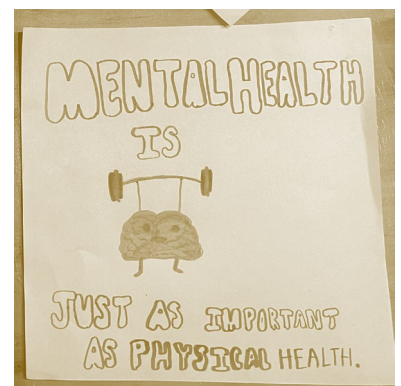 MENTAL HEALTH
IS
JUST AS IMPORTANT
AS PHYSICAL HEALTH.